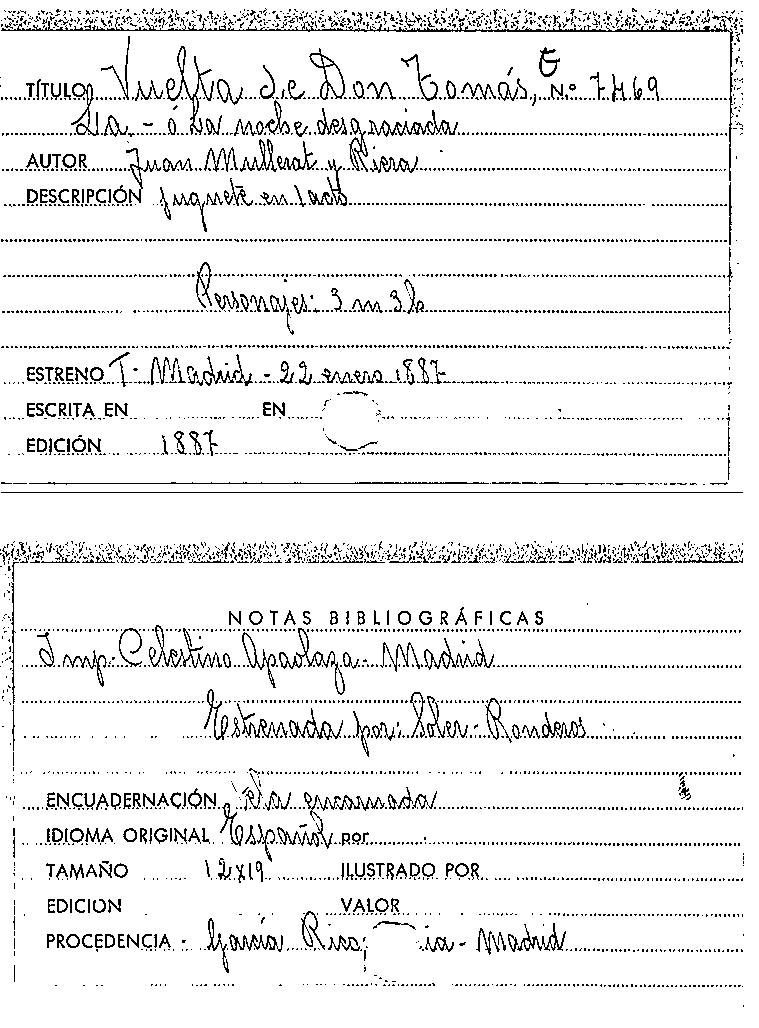 TÍTULO Vuelta de Don Tomás, N.º 7469
La. - ó La noche desgraciada
AUTOR Juan Mullerat y Riera
DESCRIPCIÓN juguete en 1 acto
Personajes: 3 m 3 h
ESTRENO T. Madrid - 22 enero 1887
ESCRITA EN EN
EDICIÓN 1887
NOTAS BIBLIOGRÁFICAS
Imp. Celestino Apaolaza - Madrid
Estrenada por: Soler - Ronderos
ENCUADERNACIÓN Tela encarnada
IDIOMA ORIGINAL Español por
TAMAÑO 12x19 ILUSTRADO POR
EDICION VALOR
PROCEDENCIA - García Rico, ia - Madrid